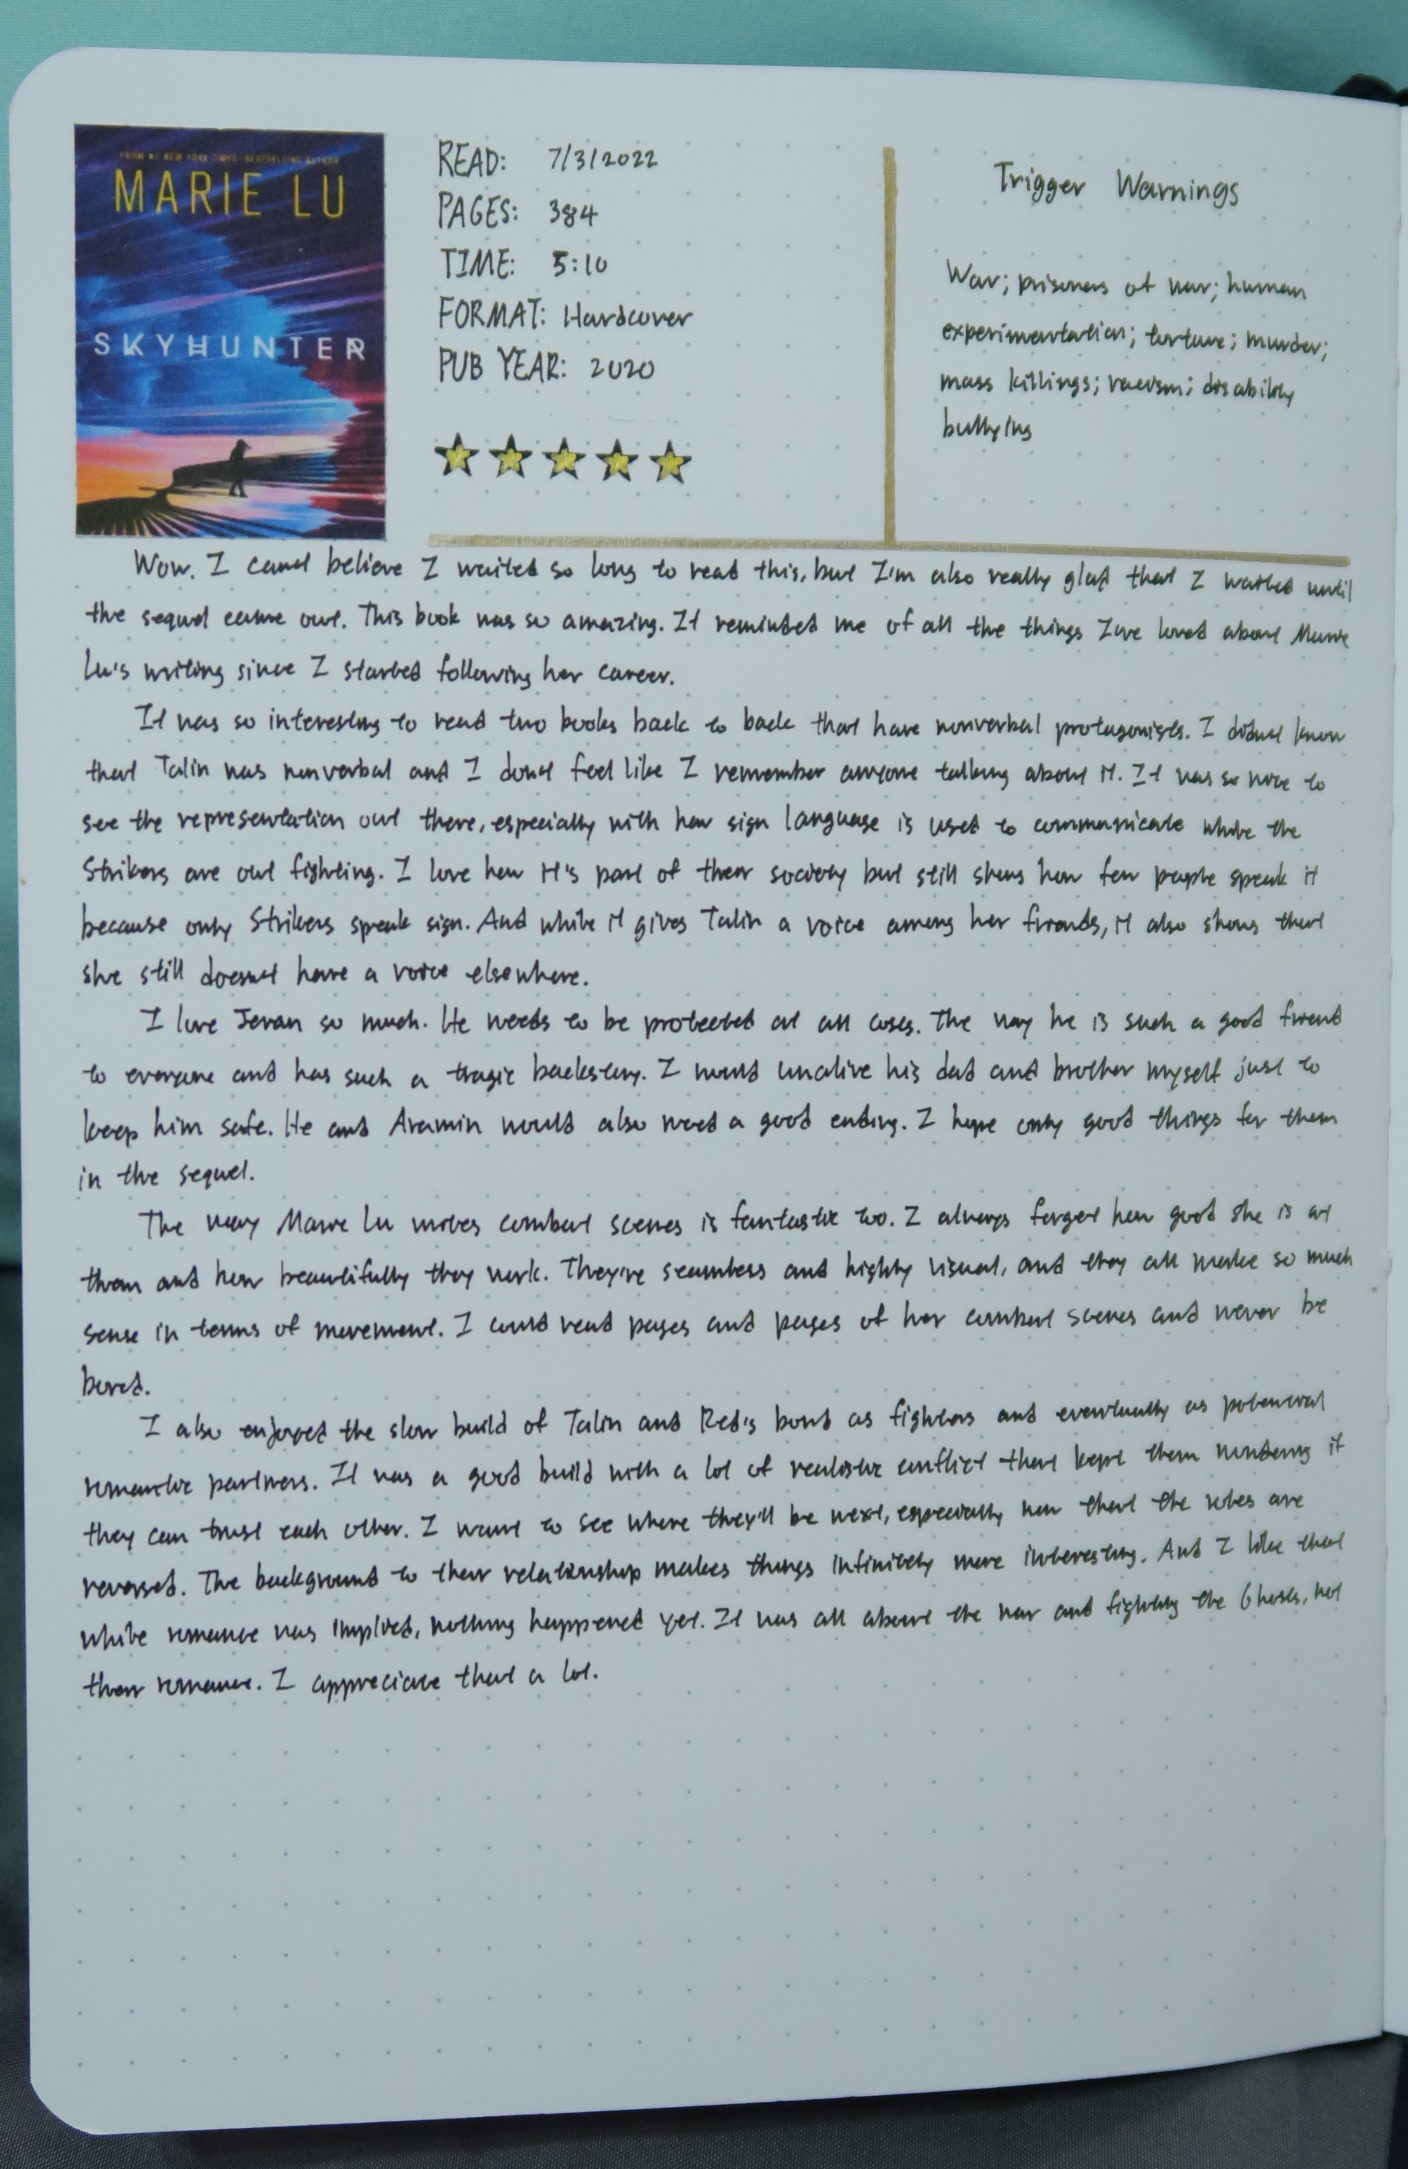 FROM #1 NEW YORK TIMES-BESTSELLING AUTHOR
MARIE LU
SKYHUNTER
READ: 7/3/2022
PAGES: 384
TIME: 5:10
FORMAT: Hardcover
PUB YEAR: 2020
Trigger Warnings
War; prisoners of war; human
experimentation; torture; murder;
mass killings; racism; disability
bullying
Wow. I can't believe I waited so long to read this, but I'm also really glad that I waited until
the sequel came out. This book was so amazing. It reminded me of all the things I've loved about Marie
Lu's writing since I started following her career.
It was so interesting to read two books back to back that have nonverbal protagonists. I didn't know
that Talin was nonverbal and I don't feel like I remember anyone talking about it. It was so nice to
see the representation out there, especially with how sign language is used to communicate while the
Strikers are out fighting. I love how it's part of their society but still shows how few people speak it
because only Strikers speak sign. And while it gives Talin a voice among her friends, it also shows that
she still doesn't have a voice elsewhere.
I love Jeran so much. He needs to be protected at all costs. The way he is such a good friend
to everyone and has such a tragic backstory. I would unalive his dad and brother myself just to
keep him safe. He and Aramin would also need a good ending. I hope only good things for them
in the sequel.
The way Marie Lu writes combat scenes is fantastic too. I always forget how good she is at
them and how beautifully they work. They're seamless and highly visual, and they all make so much
sense in terms of movement. I could read pages and pages of her combat scenes and never be
bored.
I also enjoyed the slow build of Talin and Red's bond as fighters and eventually as potential
romantic partners. It was a good build with a lot of realistic conflict that kept them wondering if
they can trust each other. I want to see where they'll be next, especially now that the roles are
reversed. The background to their relationship makes things infinitely more interesting. And I like that
while romance was implied, nothing happened yet. It was all about the war and fighting the Ghosts, not
their romance. I appreciate that a lot.